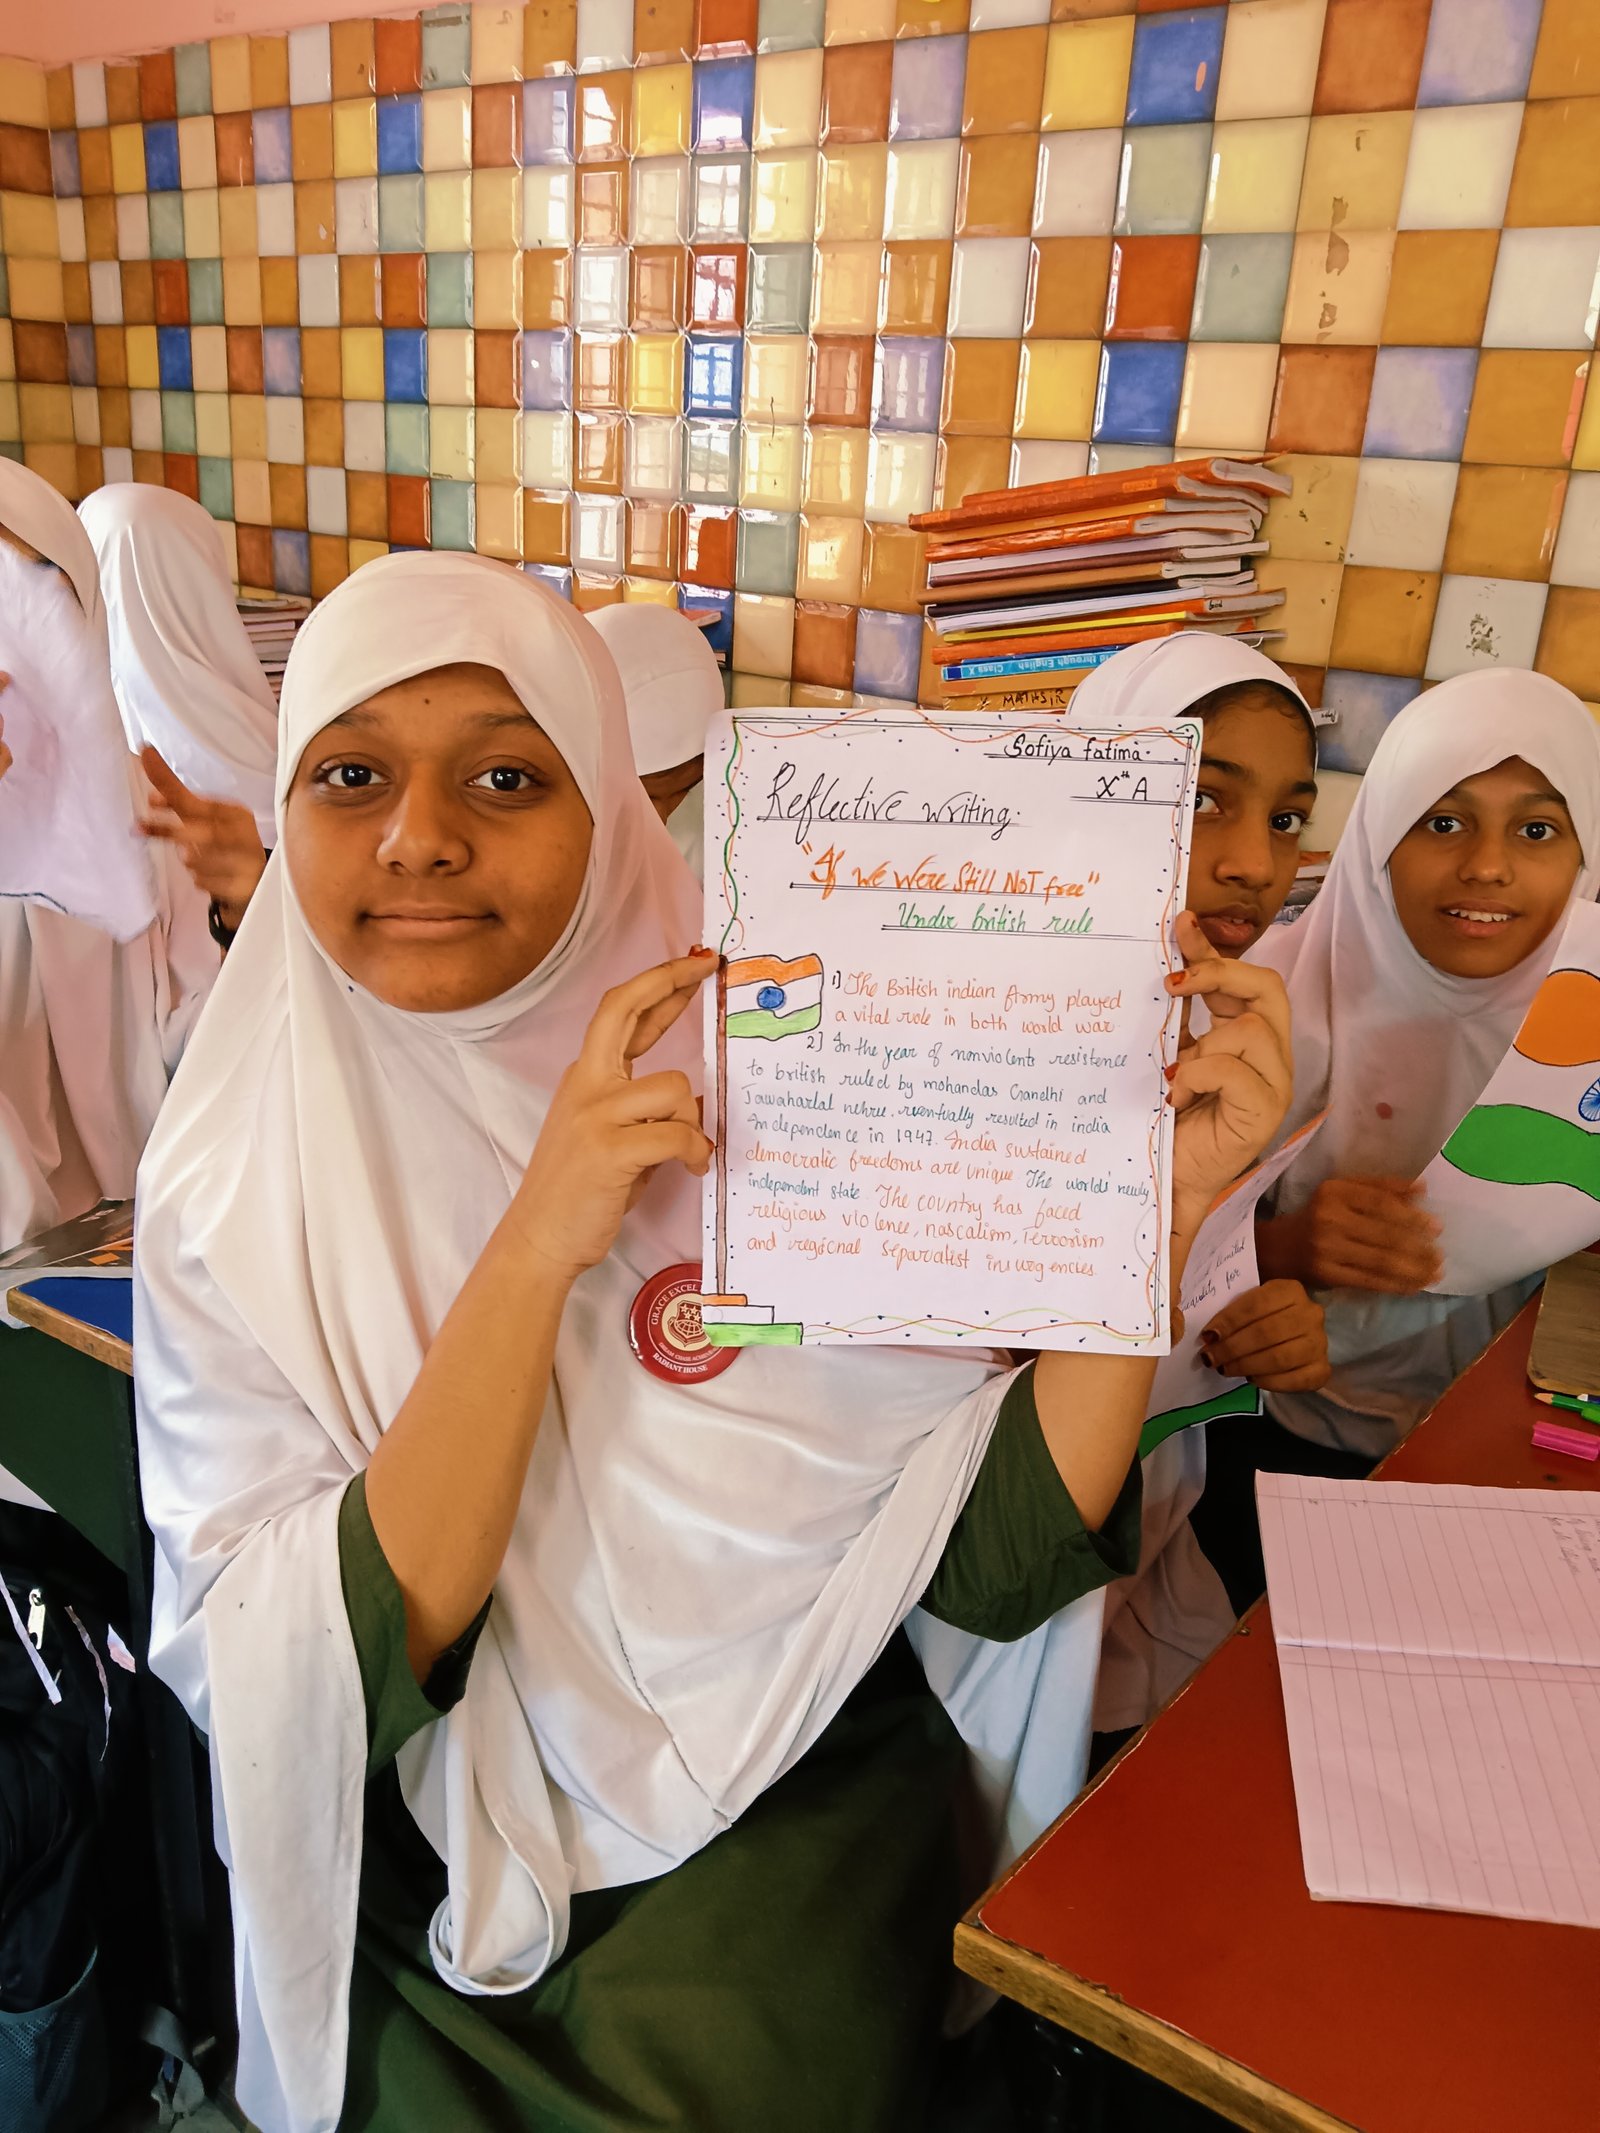 Sofiya fatima.
Xth A
Reflective writing.
"If we were Still NOT free"
Under british rule
1) The British indian Army played
a vital role in both world war.
2) In the year of nonviolents resistence
to british ruled by mohandas Gandhi and
Jawaharlal nehru. eventually resulted in india
Independence in 1947. India sustained
democratic freedoms are unique. The world's newly
independent state. The country has faced
religious violence, nascalism, Terrorism
and regional separatist insurgencies.
GRACE EXCEL
RADIANT HOUSE
through English
Class X
MATHS
limited
for